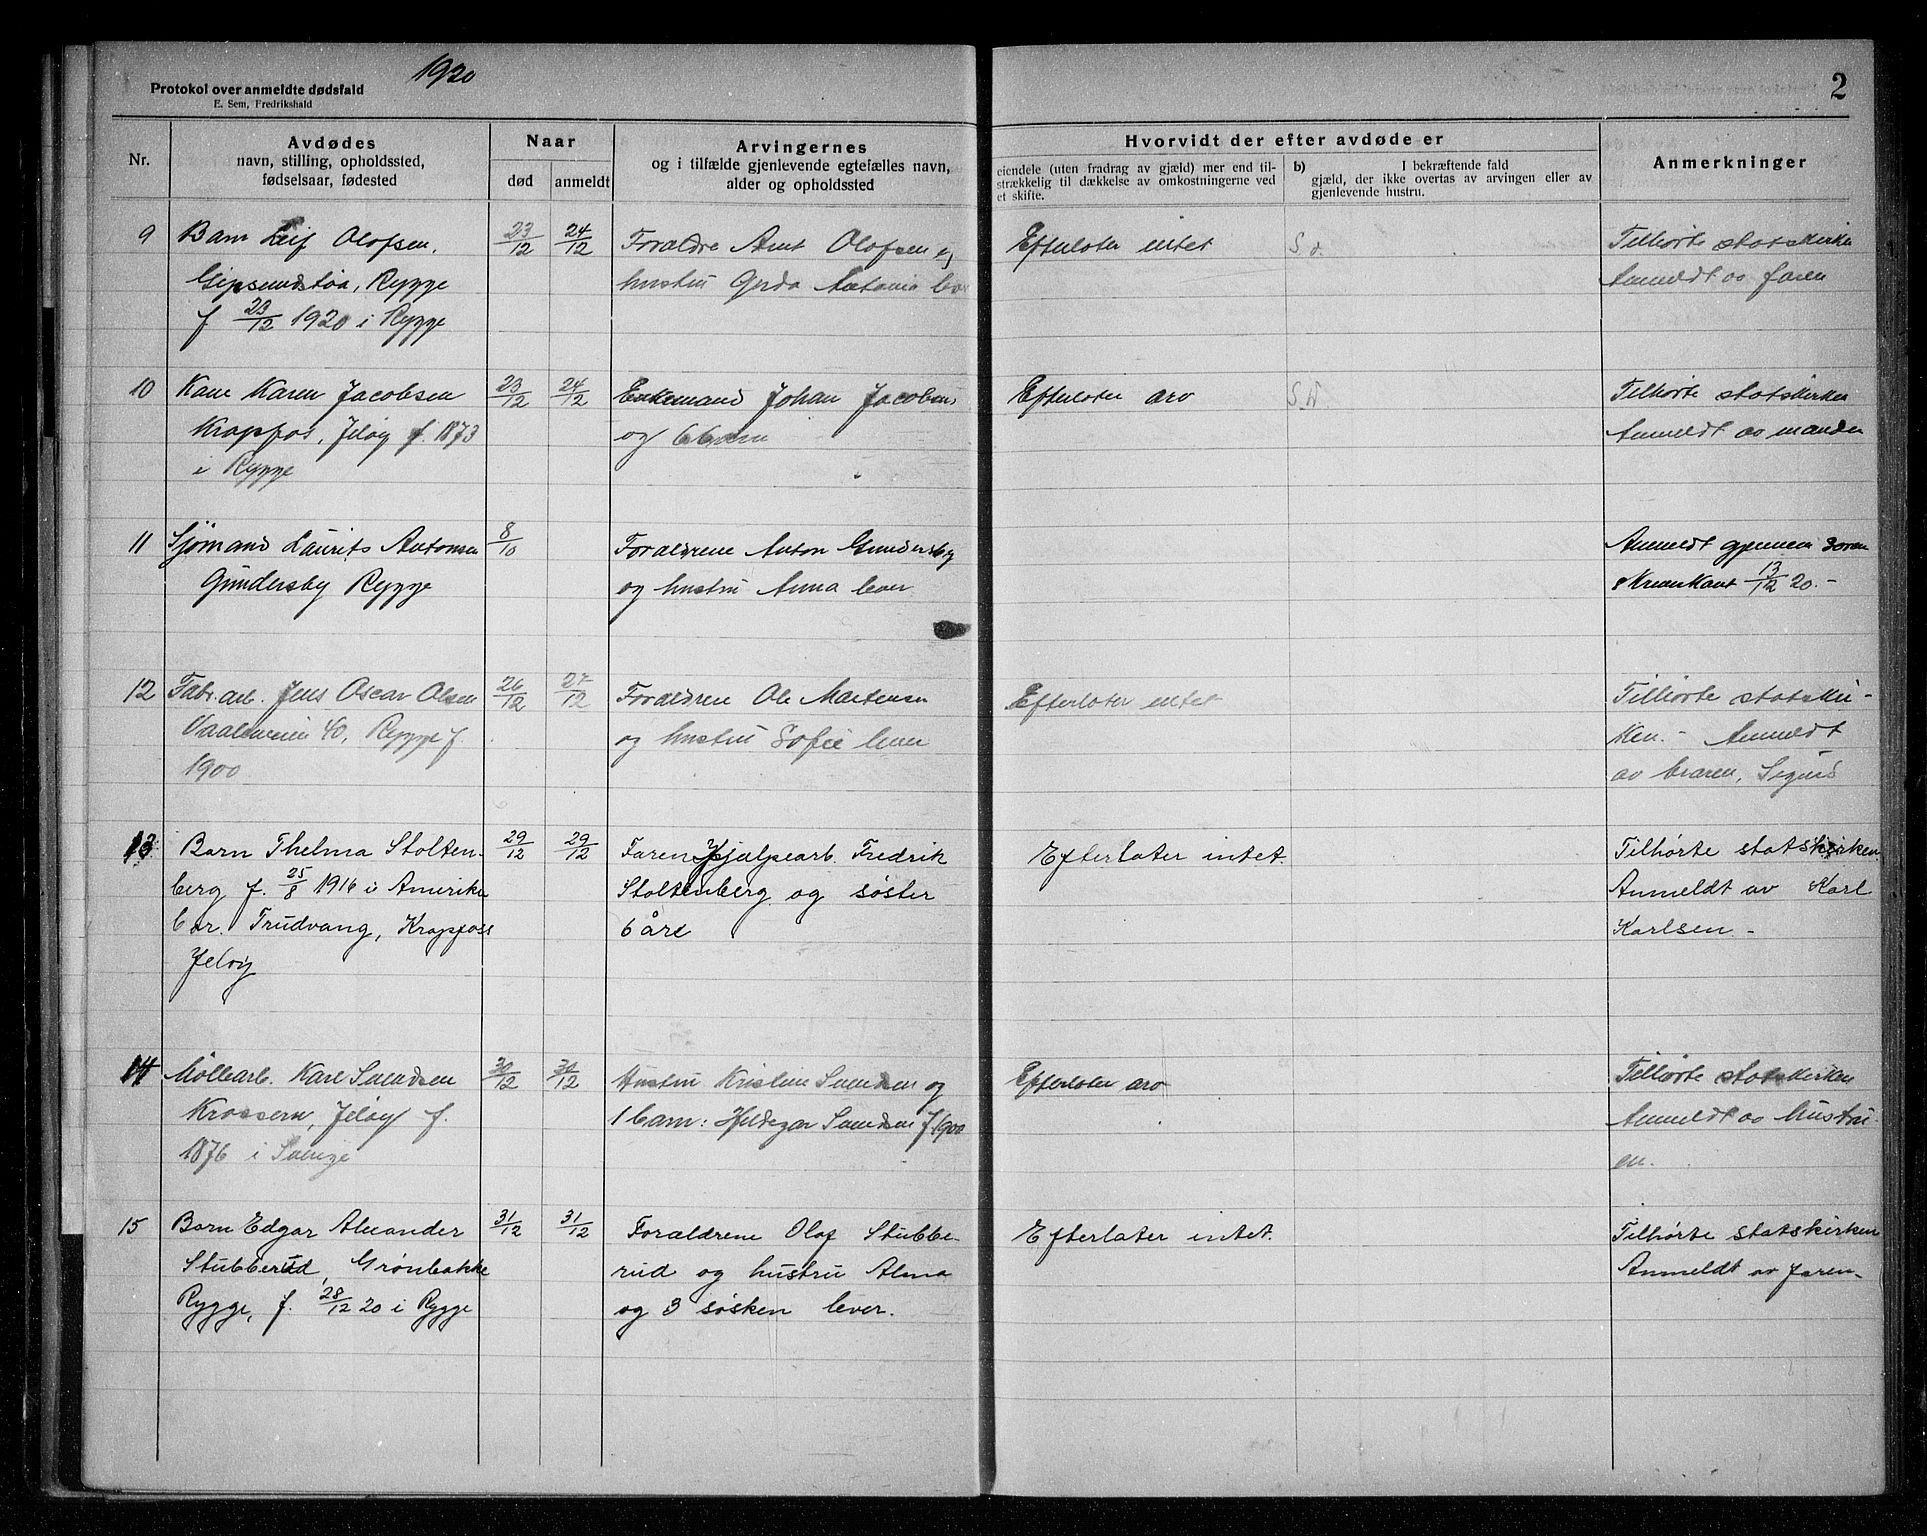 1920
2
Protokol over anmeldte dødsfald
E. Sem, Fredrikshald
Nr.
Avdødes
navn, stilling, opholdssted,
fødselsaar, fødested
Naar
død
anmeldt
Arvingernes
og i tilfælde gjenlevende egtefælles navn,
alder og opholdssted
Hvorvidt der efter avdøde er
eiendele (uten fradrag av gjæld) mer end til-
strækkelig til dækkelse av omkostningerne ved
et skifte.
b) I bekræftende fald
gjæld, der ikke overtas av arvingen eller av
gjenlevende hustru.
Anmerkninger
9
Barn Leif Olofsen,
Rygge
f 23/12 1920 i Rygge
23/12
24/12
Foraldre Arnt Olofsen
hustru Gerda Antonia
Efterlater intet
Tilhørte statskirken
Anmeldt av faren
10
Kone Karen Jacobsen
Kropfos, Jeløy f. 1873
i Rygge
23/12
24/12
Enkemand Johan Jacobsen
og 6 barn
Efterlater arv
Tilhørte statskirken
Anmeldt av manden
11
Sjømand Laurits Antonsen
Gundersby Rygge
8/10
Foraldrene Anton Gundersby
og hustru Anna lever
Anmeldt gjennem
13/12 20.-
12
Fabr. arb. Jens Oscar Olsen
40, Rygge f.
1900
26/12
27/12
Foraldrene Ole Martensen
og hustru Sofie lever
Efterlater intet
Tilhørte statskir-
ken.- Anmeldt
av broren, Sigurd
13
Barn Thelma Stolten-
berg f. 25/8 1916 i Amerika
bor. Trudvang, Kropfoss
Jeløy
29/12
29/12
Faren Hjælpearb. Fredrik
Stoltenberg og søster
6 åre
Efterlater intet.
Tilhørte statskirken.
Anmeldt av Karl
Karlsen.-
14
Møllearb. Karl Svendsen
Krossern, Jeløy f.
1876 i Sverige
30/12
30/12
Hustru Kristine Svendsen og
1 barn: Hildegar Svendsen f 1900
Efterlater arv
Tilhørte statskirken
Anmeldt av hustru-
en.
15
Barn Edgar Alexander
Stubberud, Grønbakke
Rygge, f. 28/12 20 i Rygge
31/12
31/12
Foraldrene Olaf Stubbe-
rud og hustru Alma
og 3 søsken lever.
Efterlater intet.
Tilhørte statskirken
Anmeldt av faren.